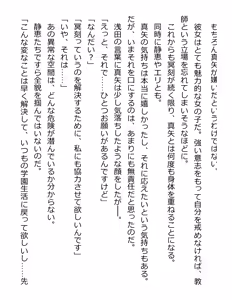 もちろん真矢が嫌いというわけではない。
彼女はとても魅力的な女の子だ。強い意志をもって自分を戒めなければ、教
師という立場を忘れてしまいそうなほどに。
これからも冥刻が続く限り、真矢とは何度も身体を重ねることになる。
同時に静恵やエリとも。
真矢の気持ちは本当に嬉しかったし、それに応えたいという気持ちもある。
だが、いまそれを口にするのは、あまりにも無責任だと思ったのだ。
浅田の言葉に真矢は少し気落ちしたような顔をしたが──。
「えっと、それで……ひとつお願いがあるんですけど」
「なんだい？」
「冥刻っていうのを解決するために、私にも協力させて欲しいんです」
「いや、それは……」
あの異常な空間は、どんな危険が潜んでいるか分からない。
静恵たちですら全貌を掴んではいないのだ。
「こんな変なことは早く解決して、いつもの学園生活に戻って欲しいし……先